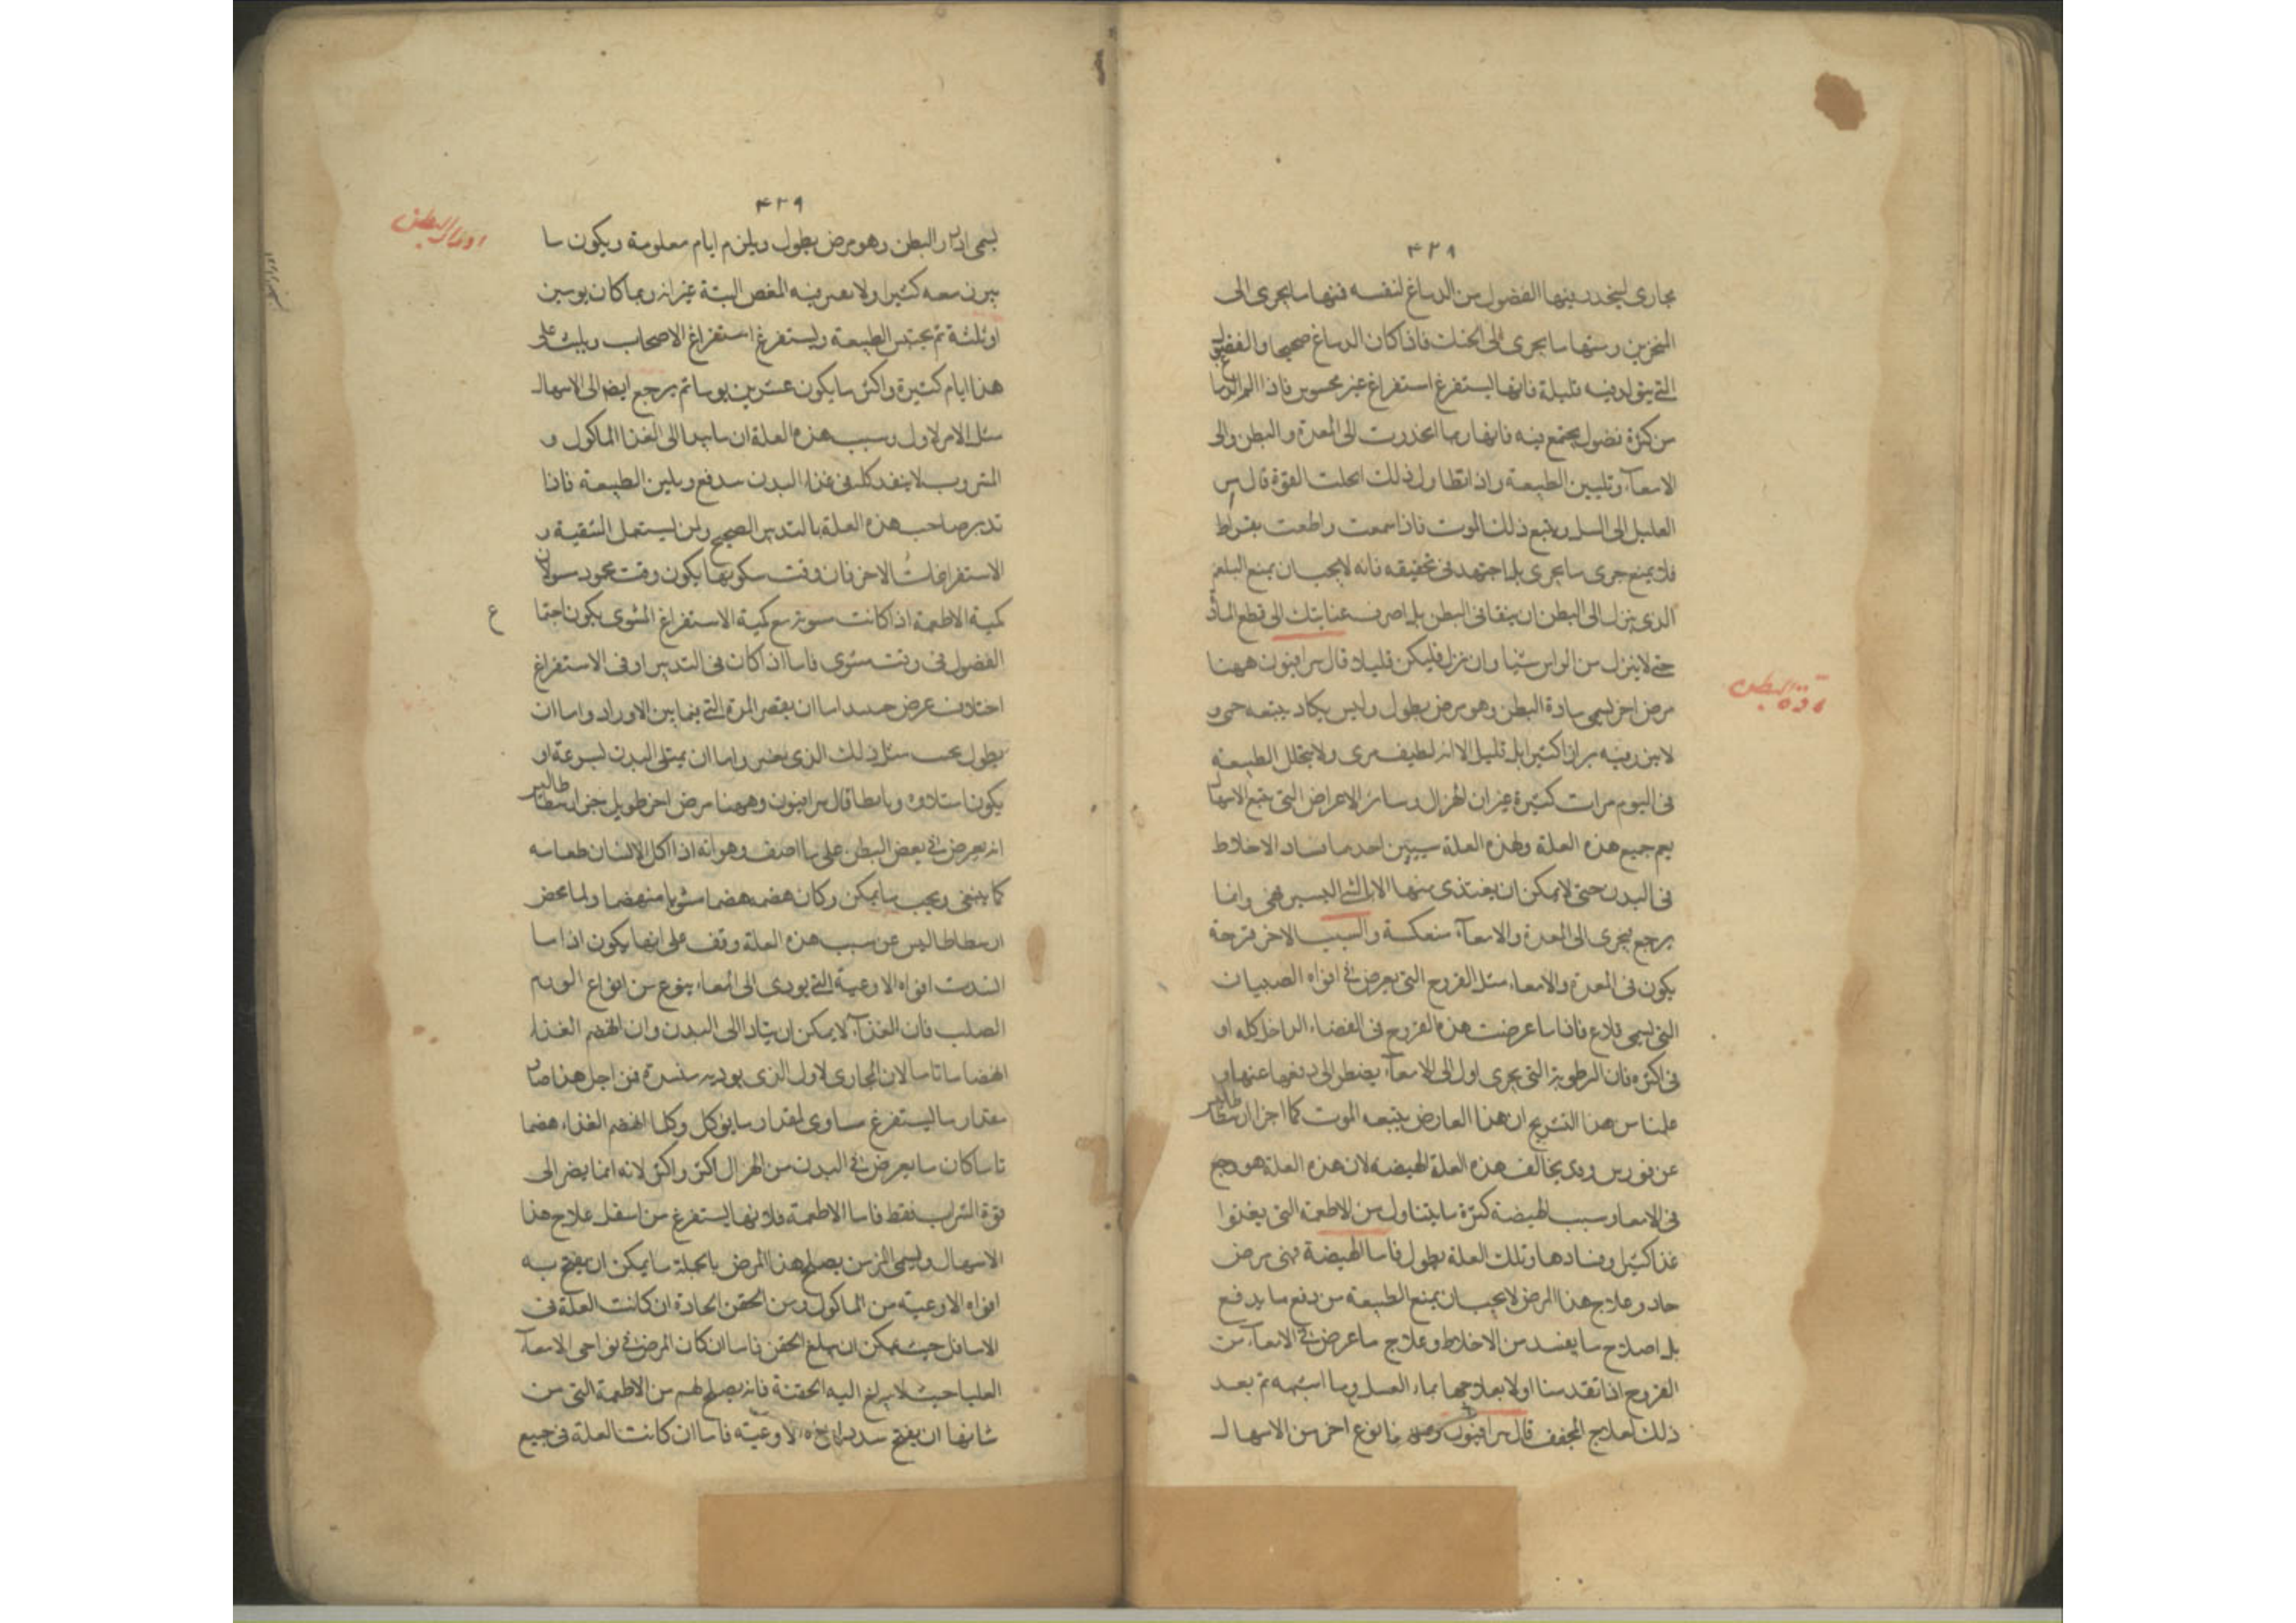 ٤٢٩
مجارى ليتحدر فيها الفضول من الدماغ لنفسه فمنها ما يجرى الى
المنخرين ومنها ما يجرى الى الحنك فاذا كان الدماغ صحيحا والفضول
التى يتولد فيه قليلة فانها يستفرغ استفراغ غير محسوس فاذا الم الدماغ
من كثرة فضول يجتمع فيه فانها ربما انحدرت الى المعدة والبطن والى
الامعآء وتليين الطبيعة واذا تطاول ذلك انحلت القوة
العليل الى السل ويتبع ذلك الموت فاذا سمعت واطعت بقراط
فلا يمنع جرى ما يجرى بل اجتهد فى تخفيفه فانه لا يجب ان يمنع البلغم
الذى ينزل الى البطن ان ينقا فى البطن بل اصرف عنايتك الى قطع المادة
حتى لا ينزل من الراس شيئا وان نزل فليكن قليلا قال سرافيون ههنا
مرض اخر يسمى مادة البطن وهو مرض يطول وليس يكاد يتبعه حمى و
لا يبرز فيه براز اكثيرا بل قليل الا انه لطيف مرى ولا يتحلل الطبيعة
فى اليوم مرات كثيرة غير ان الهزال وسائر الاعراض التى يتبع الاسهال
يعم جميع هذه العلة ولهذه العلة سببين احدهما فساد الاخلاط
فى البدن حتى لا يمكن ان يغتذى منها الا الشئ اليسير وانما
يرجع يجرى الى المعدة والامعآء منعكسة والسبب الاخر قرحة
يكون فى المعدة والامعاء مثل القروح التى يعرض فى افواه الصبيان
التى تسمى قلاع فاذا ما عرضت هذه القروح فى الفضاء الداخل كله او
فى اكثره فان الرطوبة التى يجرى اول الى الامعآء يضطر الى دفعها عنها و
علمنا من هذا التشريح ان هذا العارض يتبعه الموت كما اخبر ارسطاطاليس
عن يخالف هذه العلة الهيضة لان هذه العلة هو وجع
فى الامعا وسبب الهيضة كثرة ما يتناول من الاطعمة التى يغذوا
غذا كثيرا وفسادها وتلك العلة يطول فاما الهيضة فهى مرض
حاد وعلاج هذا المرض لا يجب ان يمنع الطبيعة من دفع ما يدفع
بل اصلاح ما يفسد من الاخلاط وعلاج ما عرض فى الامعآء من
القروح اذا تقدمنا اولا بعلاجها بماء العسل وما اشبهه ثم بعد
ذلك بعلاج المجفف قال سرافيون نوع اخر من الاسهال
مادة البطن
٤٢٩
يسمى ادوار البطن وهو مرض يطول ويلزم ايام معلومة ويكون ما
يبرز معه كثيرا ولا يعرض فيه المغص البتة غير انه ربما كان يومين
او ثلثة ثم يحتبس الطبيعة ويستفرغ استفراغ الاصحاب ويلبث على
هذا ايام كثيرة واكثر ما يكون عشرين يوما ثم يرجع ايضا الى الاسهال
مثل الامر الاول وسبب هذه العلة ان الى الغذا الماكول و
المشروب لا ينفد كله فى غذاء البدن يدفع ويلين الطبيعة فاذا
تدبر صاحب هذه العلة بالتدبير الصحيح ولمن يستعمل التنقية و
الاستفراغات الاخر فان وقت سكونها يكون وقت محدود سوا لان
كمية الاطعمة اذا كانت سوية مع كمية الاستفراغ المستوى يكون اجتما
ع
الفضول فى وقت مستوى فاما اذا كان فى التدبير او فى الاستفراغ
اختلاف عرض اما ان يقصر المدة التى فيما بين الادوار واما ان
يطول بحسب مثل ذلك الذى يعرض واما ان يمتلى البدن بسرعة او
يكون امتلاوه وبابطا قال سرافيون وههنا مرض اخر طويل خبر ارسطاطاليس
انه يعرض فى بعض البطن على ما اصف وهو انه اذا اكل الانسان طعامه
كما ينبغى ويجب ما يمكن وكان هضمه هضما مستويا منهضما ولما محض
ارسطاطاليس عن سبب هذه العلة وقف على انها يكون اذا ما
انسدت افواه الاوعية التى يودى الى امعاء بنوع من انواع الورم
الصلب فان الغذآء لا يمكن ان يتادا الى البدن وان انهضم الغذاء
انهضاما تاما لان المجارى الاول الذى يوديه منسدة فمن اجل هذا صار
مقدار ما يستفرغ مساوى لمقدار ما يؤكل وكلما انهضم الغذاء هضما
تاما كان ما يعرض فى البدن من الهزال اكثر واكثر لانه انما يصير الى
قوة الشراب فقط فاما الاطعمة فلانها يستفرغ من اسفل علاج هذا
الاسهال ويسمى المزمن يصلح هذا المرض بالجملة ما يمكن ان يفتح به
افواه الاوعية من الماكول ومن الحقن الحادة ان كانت العلة فى
الاسافل حيث يمكن ان يبلغ الحقن فاما ان كان المرض فى نواحى الامعآء
العليا حيث لا يبلغ اليه الحقنة فانه يصلح لهم من الاطعمة التى من
شانها ان يفتح سدد افواه الاوعية فاما ان كانت العلة فى جميع
ادوار البطن